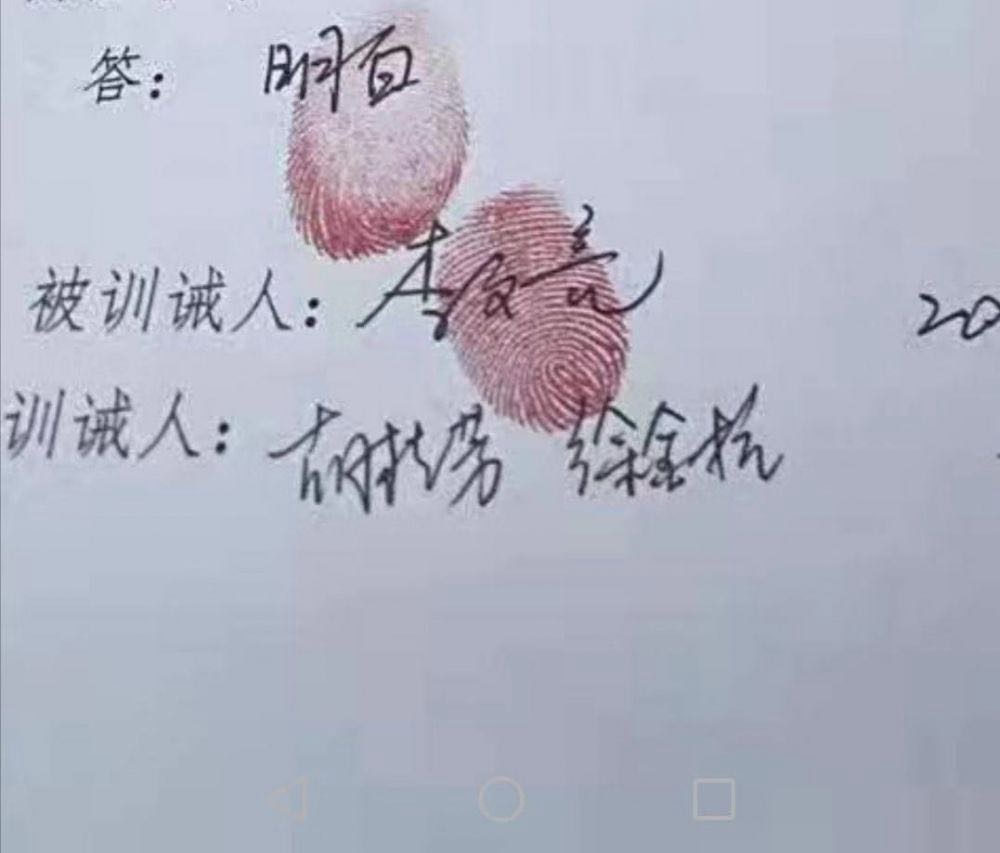 答： 明白
被训诫人：李文亮 20
训诫人：胡桂芳 徐金杭